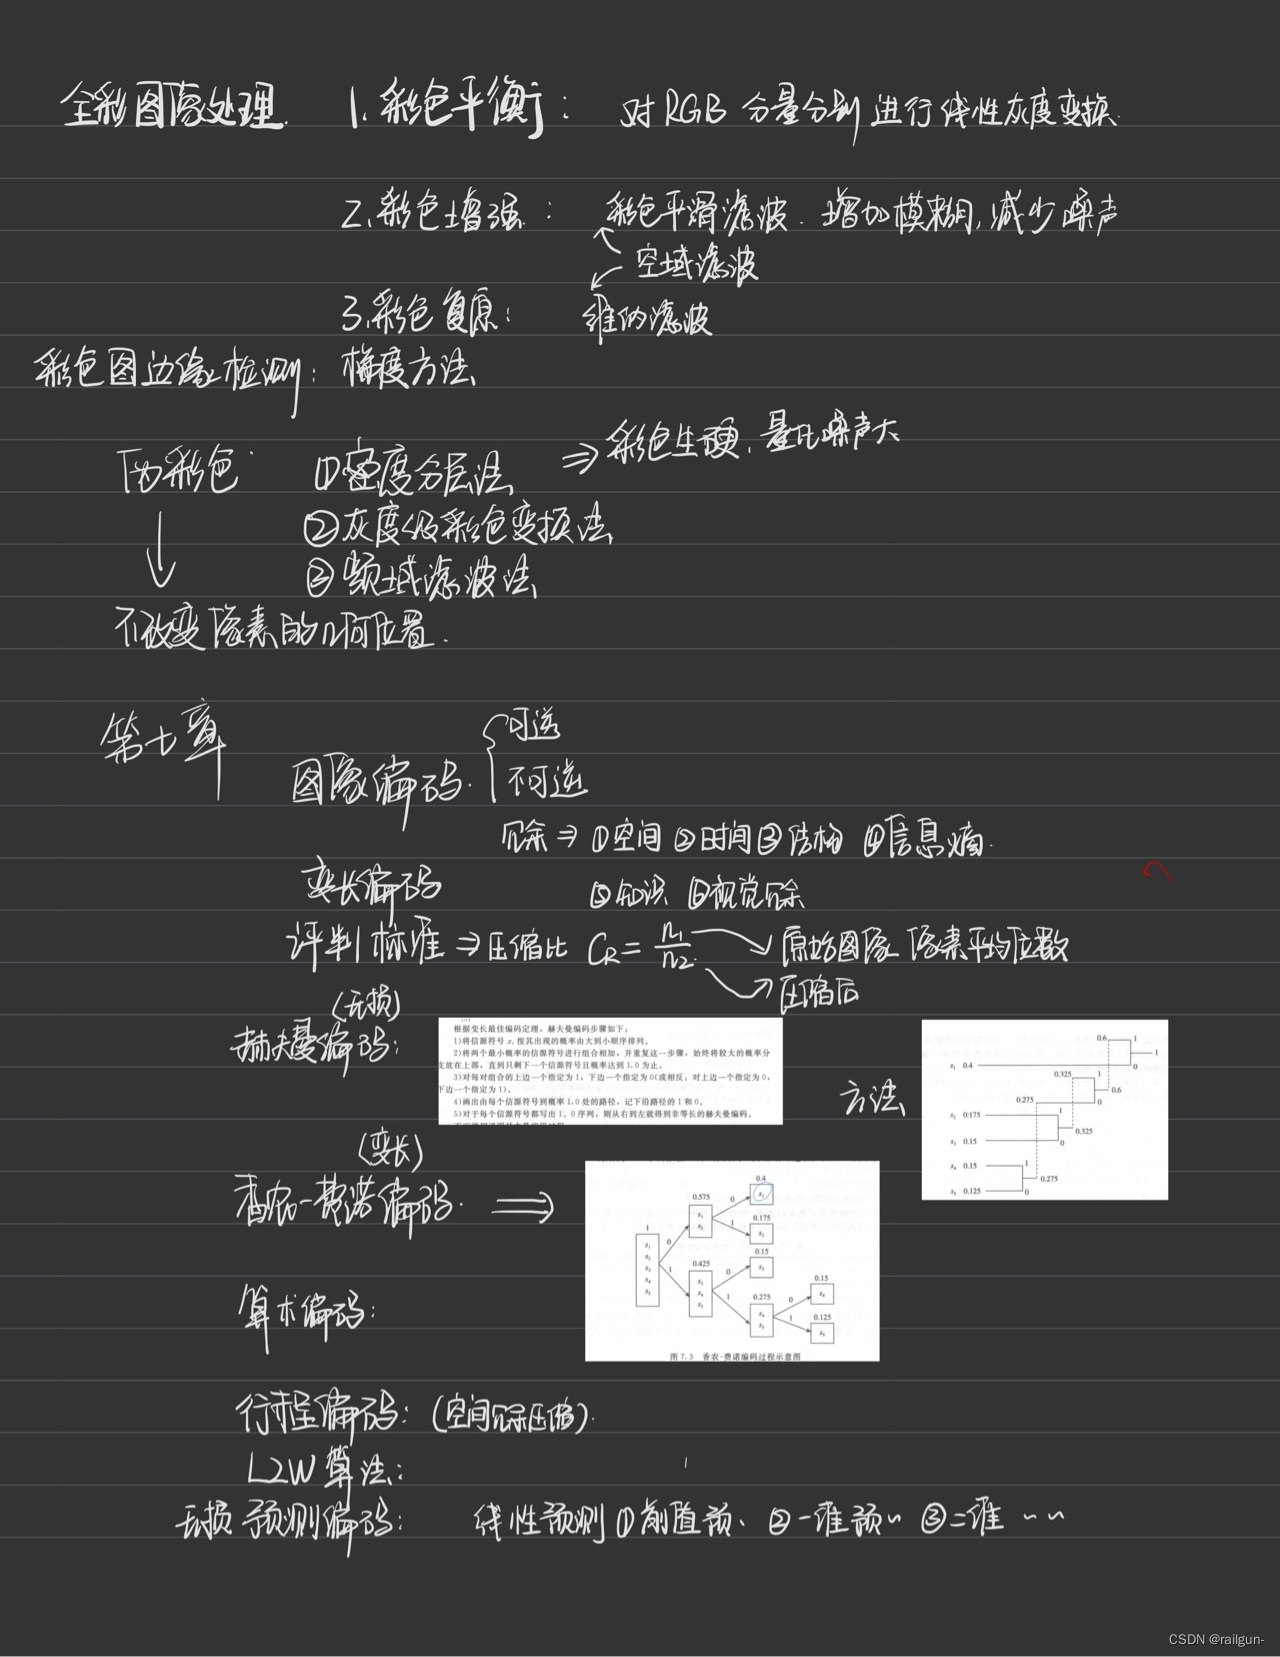 全彩图像处理 1. 彩色平衡： 对RGB分量分别进行线性灰度变换.
2. 彩色增强： 彩色平滑滤波. 增加模糊,减少噪声
空域滤波
3. 彩色复原： 维纳滤波
彩色图边缘检测： 梯度方法
伪彩色 ①密度分层法 ⇒ 彩色生硬,量化噪声大
②灰度级彩色变换法
③频域滤波法
不改变像素的几何位置.
第七章
图像编码. 可逆
不可逆
冗余 ⇒ ①空间 ②时间 ③结构 ④信息熵.
变长编码 ⑤知识 ⑥视觉冗余
评判标准 ⇒ 压缩比 CR = n1/n2 原始图像像素平均位数
压缩后
(无损)
赫夫曼编码：
根据变长最佳编码定理，赫夫曼编码步骤如下：
1)将信源符号 xi 按其出现的概率由大到小顺序排列。
2)将两个最小概率的信源符号进行组合相加，并重复这一步骤，始终将较大的概率分
支放在上部，直到只剩下一个信源符号且概率达到 1.0 为止。
3)对每对组合的上边一个指定为 1，下边一个指定为 0(或相反：对上边一个指定为 0，
下边一个指定为 1)。
4)画出由每个信源符号到概率 1.0 处的路径，记下沿路径的 1 和 0。
5)对于每个信源符号都写出 1、0 序列，则从右到左就得到非等长的赫夫曼编码。
方法
0.6 1
s1 0.4 1
0
0.325 1
0.6
0.275 0
s2 0.175 1
0.325
s3 0.15 0
s4 0.15 1
0.275
s5 0.125 0
(变长)
香农-费诺编码. ⟹
0.4
0.575 0 s1
s1
s2 1 0.175
1 s2
s1 0 0.15
s2 0.425 s3
s3 1 s3 0
s4 s4 0.15
s5 s5 1 0.275 0 s4
s4
s5 1 0.125
s5
图 7.3 香农-费诺编码过程示意图
算术编码：
行程编码： (空间冗余压缩).
LZW算法：
无损预测编码： 线性预测 ①前值预、 ②一维预~ ③二维 ~~
CSDN @railgun-